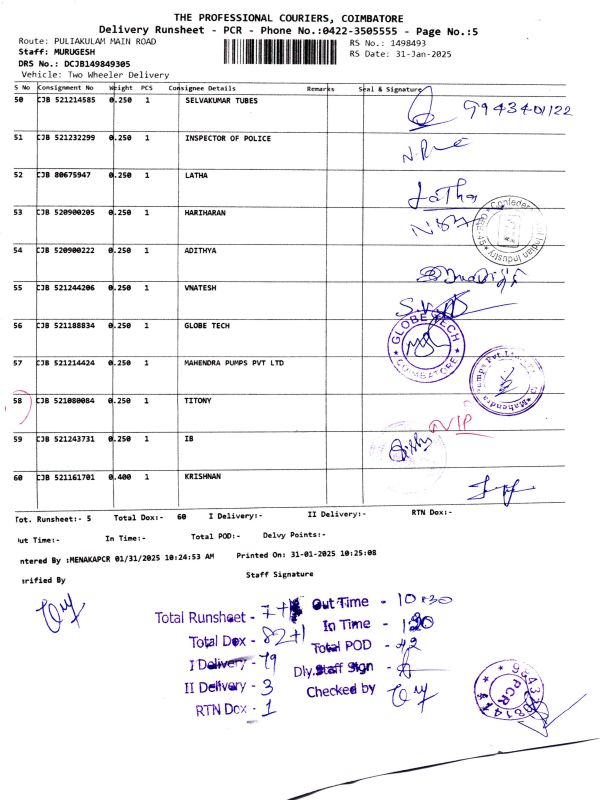 THE PROFESSIONAL COURIERS, COIMBATORE
Delivery Runsheet - PCR - Phone No.:0422-3505555 - Page No.:5
Route: PULIAKULAM MAIN ROAD
RS No.: 1498493
Staff: MURUGESH
RS Date: 31-Jan-2025
DRS No.: DCJB149849305
Vehicle: Two Wheeler Delivery
S No Consignment No Weight PCS Consignee Details Remarks Seal & Signature
50 CJB 521214585 0.250 1 SELVAKUMAR TUBES 9943401122
51 CJB 521232299 0.250 1 INSPECTOR OF POLICE
52 CJB 80675947 0.250 1 LATHA Latha
53 CJB 520900205 0.250 1 HARIHARAN
Confederation of Indian Industry
54 CJB 520900222 0.250 1 ADITHYA
55 CJB 521244206 0.250 1 VNATESH
56 CJB 521188834 0.250 1 GLOBE TECH
GLOBE TECH COIMBATORE
57 CJB 521214424 0.250 1 MAHENDRA PUMPS PVT LTD
58 CJB 521080084 0.250 1 TITONY
59 CJB 521243731 0.250 1 IB
60 CJB 521161701 0.400 1 KRISHNAN
Tot. Runsheet:- 5 Total Dox:- 60 I Delivery:- II Delivery:- RTN Dox:-
ut Time:- In Time:- Total POD:- Delvy Points:-
ntered By :MENAKAPCR 01/31/2025 10:24:53 AM Printed On: 31-01-2025 10:25:08
rified By Staff Signature
Total Runsheet - 7+
Out Time - 10:30
Total Dox - 82+1
In Time -
I Delivery - 79
Total POD - 42
II Delivery - 3
Dly.Staff Sign -
RTN Dox - 1
Checked by
PCR